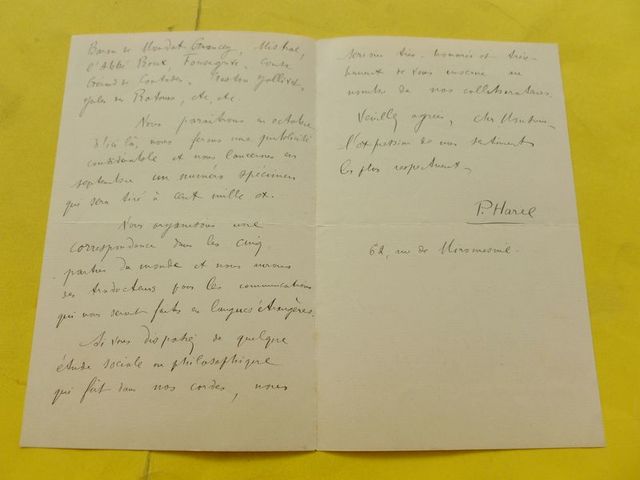 Baron de Mandat Grancey, Mistral,
l'Abbé Roux, Fonsegrive, Comte
de Contades, Gaston Jollivet,
etc, etc.
Nous paraîtrons en octobre.
D'ici là, nous ferons une publicité
considérable et nous lancerons en
septembre un numéro spécimen
qui sera tiré à cent mille ex.
Nous organisons une
correspondance dans les cinq
parties du monde et nous aurons
des traducteurs pour les communications
qui nous seront faites en langues étrangères.
Si vous disposiez de quelque
étude sociale ou philosophique
qui fût dans nos cordes, nous
serions très honorés et très
de vous inscrire au
nombre de nos collaborateurs.
Veuillez agréer, cher Monsieur,
l'expression de mes sentiments
les plus respectueux.
P. Harel
62, rue de Miromesnil.